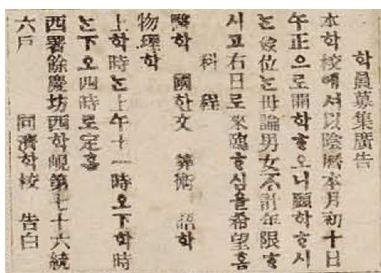 학員募集廣告
本학校에셔以陰曆本月初十日
午正으로開학ᄒᆞ오니願학ᄒᆞ시
는僉位는毋論男女不計年限ᄒᆞ
시고右日로來臨ᄒᆞ심을希望홈
科程
醫학 國한文 算術 語학
物理학
上학時는上午十一時오下학時
는下오四時로定홈
西署餘慶坊西학峴第七十六統
六戶 同濟학校 告白